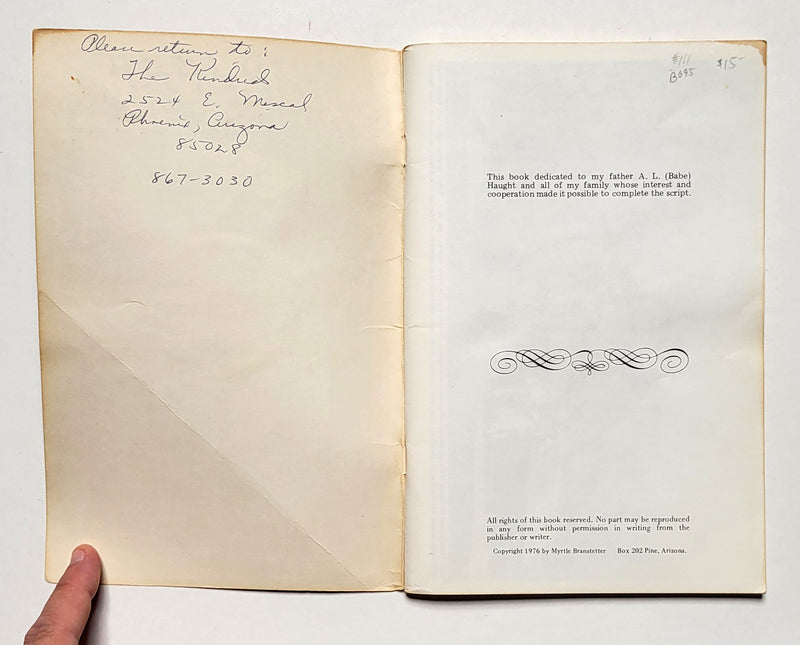 Please return to:
The Kindreds
2524 E. Mescal
Phoenix, Arizona
85028
867-3030
$111
B695
$15-
This book dedicated to my father A. L. (Babe)
Haught and all of my family whose interest and
cooperation made it possible to complete the script.
All rights of this book reserved. No part may be reproduced
in any form without permission in writing from the
publisher or writer.
Copyright 1976 by Myrtle Branstetter Box 202 Pine, Arizona.